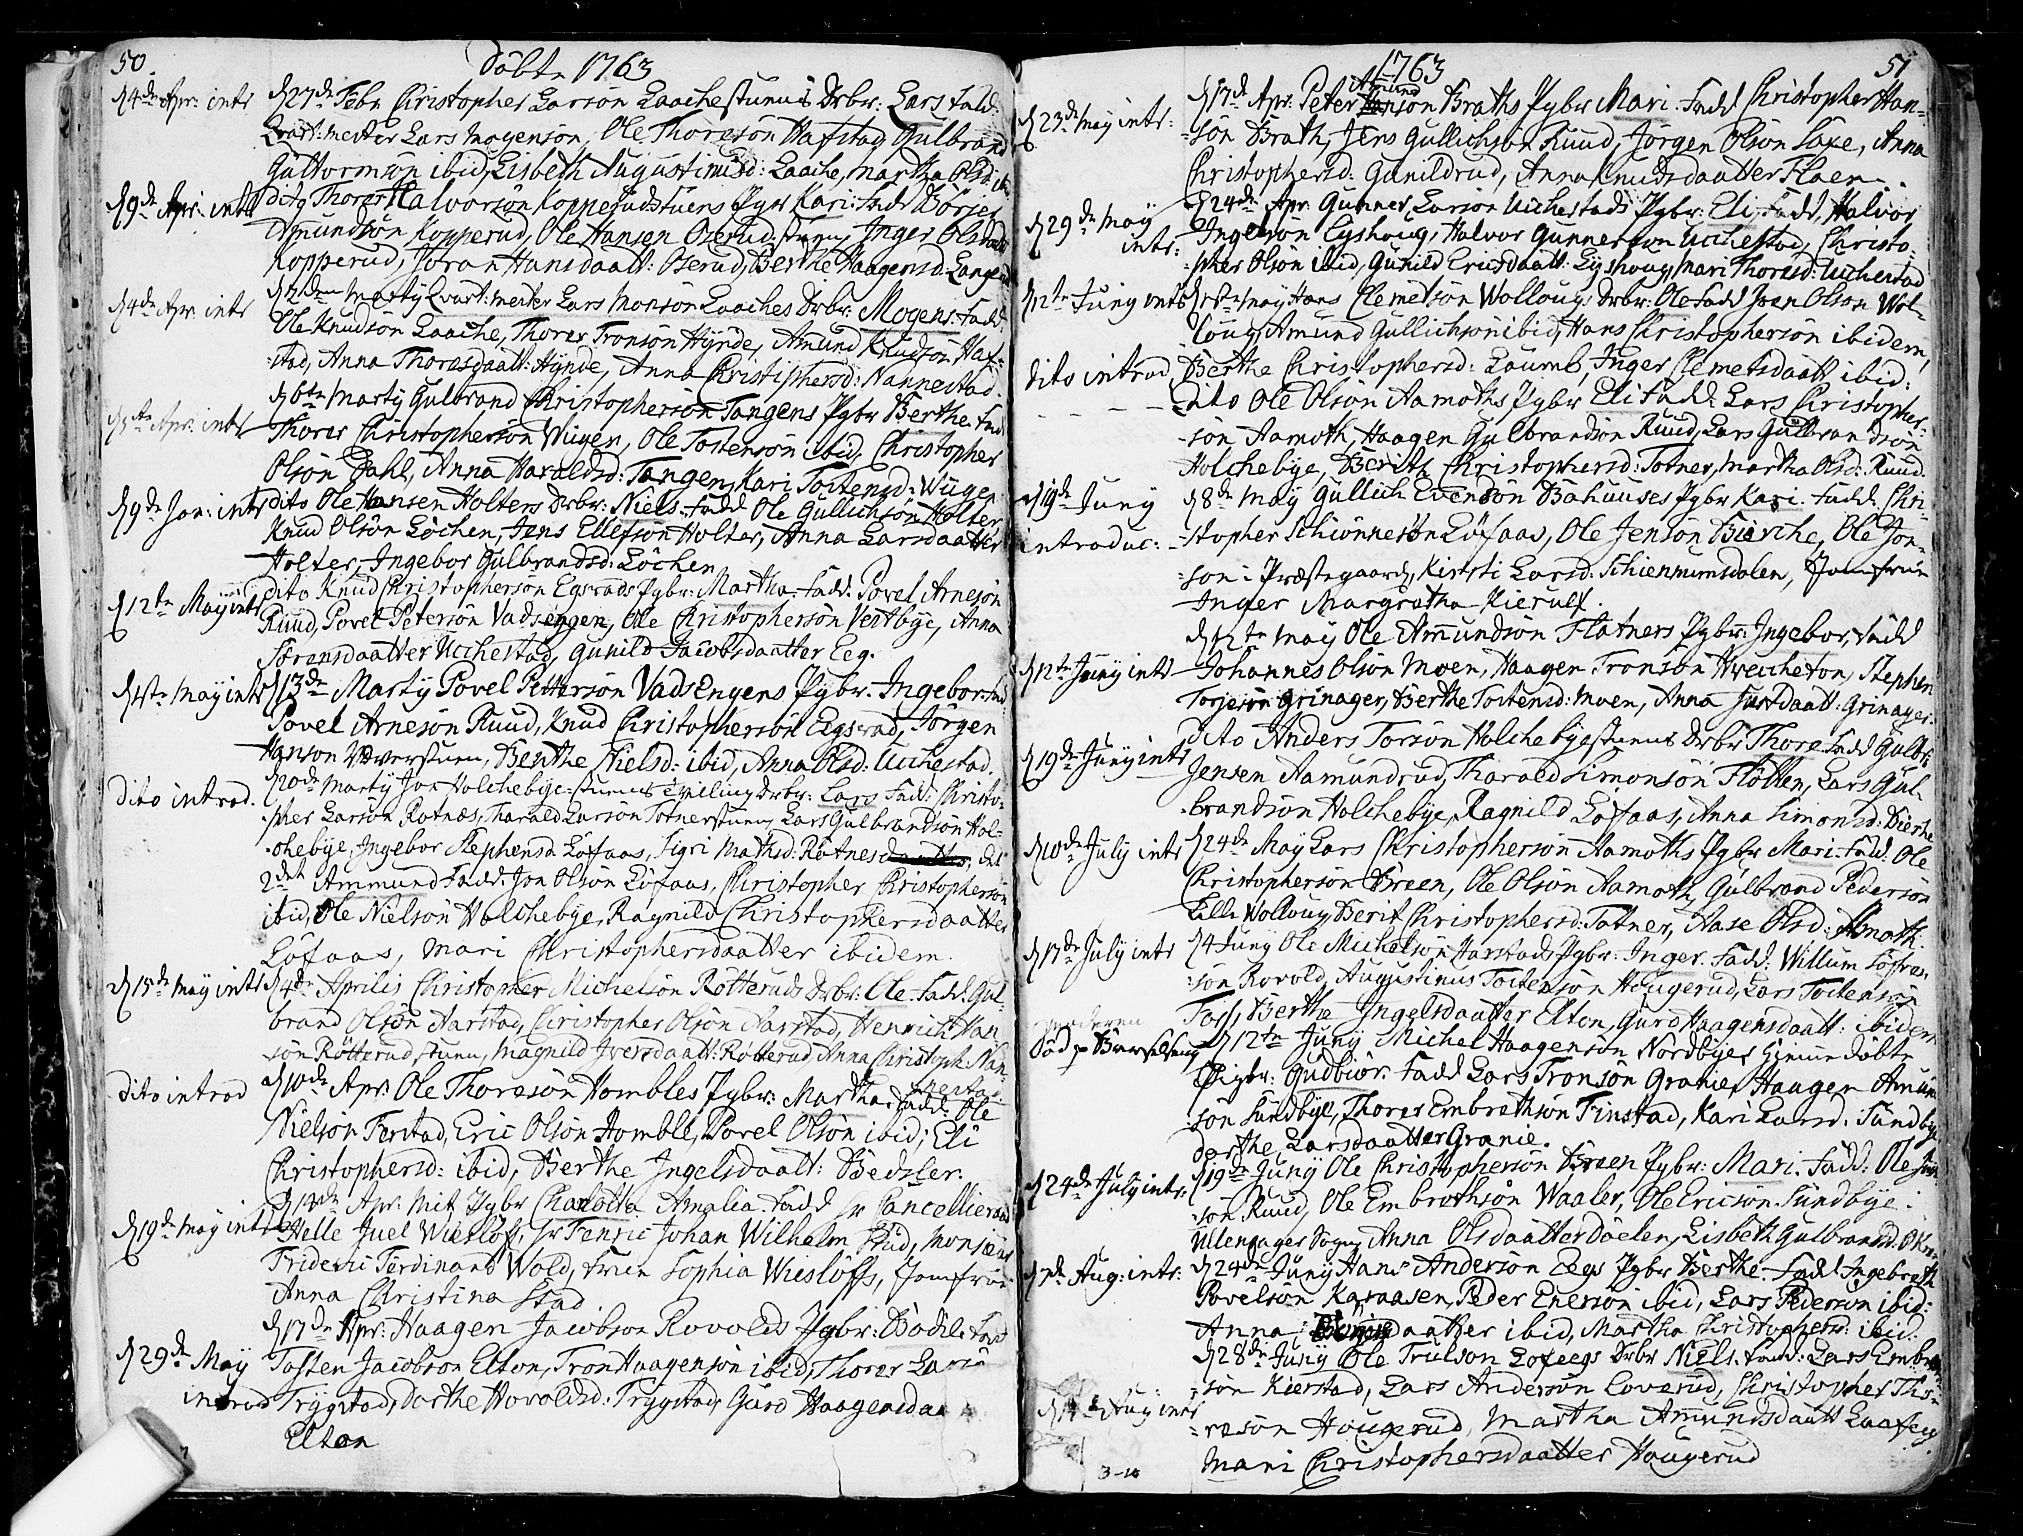 50
Döbte 1763
d 4de Apr: intr
d 27de Febr Christopher Larsön Laachestuens Drbr: Lars Fadd:
Qvart: mester Lars Mogensön, Ole Thoresön Hafstad, Gulbrand
Guttormsön ibid, Lisbeth Augustinusd: Laache, Martha Olsd: ib:
d 9de Apr: intr
dito Thorer Halvorsön Kopperudstuens Pybr Kari: Fadd Börger
Amundsön Kopperud, Ole Hansen Oserudstuen, Inger Olsdatt
Kopperud, Joran Hansdaatt: Oserud, Berthe Haagensd: Langerud
d 4de Apr. intr
Marty Qvart: mester Lars Monsön Laaches Drbr: Mogens: Fadd
Ole Knudsön Laache, Thorer Tronsön Hynde, Amund Knudsön Haf-
stad, Anna Thoresdaatt: Hynde, Anna Christophersd: Nannestad.
Apr: intr
d 6te Marty Gulbrand Christophersön Tangens Pybr Berthe. Fad
Thorer Christophersön Wiigen, Ole Tostensön ibid, Christopher
Olsön Dahl, Anna Haraldsd: Tangen, Kari Tostensd: Wiigen
d 9de Jan: intr
dito Ole Hansen Holters Drbr: Niels. Fadd Ole Gullichsön Holter
Knud Olsön Löchen, Jens Ellefsön Holter, Anna Larsdaatter
Holter, Ingebor Gulbrandsd: Löchen
d 12te May intr
dito Knud Christophersön Egsrads Pybr: Martha: Fadd. Povel Arnesön
Ruud, Povel Petersön Vadsengen, Ole Christophersön Vestbye, Anna
Sörensdaatter Uchestad, Gunild Jacobsdaatter Eeg.
d 1ste May intr
d 13de Marty Povel Pettersön Vadsengens Pybr: Ingebor: Fad
Povel Arnesön Ruud, Knud Christophersön Eegsrad, Jörgen
Hansön Væverstuen, Berthe Nielsd: ibid, Anna Olsd: Uchestad.
Dito introd.
d 20de Marty Jon Holchebye: stuens tvilling Drbr: Lars Fadd: Christo-
pher Larsön Rotnæs, Tharald Larsön Totnerstuen, Lars Gulbrandsön Hol-
chebye, Ingebor Stephensd Löfaas, Sigri Mathsd: Rotnes, det
2det Ammund Fadd: Jon Olsön Löfaas, Christopher Christophersön
ibid, Ole Nielsön Holchebye, Ragnild Christophersdaatter
Löfaas, Mari Christophersdaatter ibidem.
d 15de May intr
d 4de Aprilis Christopher Michelsön Rötteruds Drbr: Ole. Fadd. Gul-
brand Olsön Aarstad, Christopher Olsön Aarstad, Henrich Han-
sön Rötterudstuen, Magnild Iversdaatt: Rötterud, Anna Christoph: Nan-
nestad.
Dito introd
d 10de Apr: Ole Thoresön Hombles Pybr: Martha: Fadd: Ole
Nielsön Ferstad, Eric Olsön Homble, Povel Olsön ibid; Eli
Christophersd: ibid, Berthe Ingelsdaatt: Bedsler.
d 19de May intr
Apr: Mit Pybr Charlotta Amalia. Fadd Hr Cancellieraad
Helle Juel Wieslöf, Hr Fenric Johan Wilhelm Stud, Monsieur
Frideric Ferdinand Wold, Frue Sophia Wieslöffs, Jomfrue
Anna Christina Stad
d 29de May
introd
d 17de Apr: Haagen Jacobsön Rovolds Pybr: Bodil. Fadd
Tosten Jacobsön Elton, Tron Haagensön ibid, Thorer Larsön
Trygstad, Dorthe Horoldsd: Trygstad, Guro Haagensdaa
Elton
1763
51
d 23de May intr:
d 17de Apr: Peter Amund sön Braths Pybr Mari. Fadd Christopher Han-
sön Brath, Jens Gullichsön Ruud, Jörgen Olsön Saxe, Anna
Christophersd: Gunildrud, Anna Knudsdaatter Flaen.
d 29de May
intr:
d 24de Apr. Gunner Larsön Uchestads Pybr: Eli. Fadd, Halvor
Ingelsön Eyshoug, Halvor Gunnersön Uchestad, Christo-
pher Olsön ibid, Gunild Ericsdaatt: Eyshoug, Mari Thoresd: Uchestad
d 12te Juny intr
d 1ste May Hans Clemetsön Wollougs Drbr: Ole Fadd Joen Olsön Wol-
loug, Amund Gullichsön ibid, Hans Christophersön ibidem,
Berthe Christophersd: Laumb, Inger Clemetsdaatt ibid:
dito introd
dito Ole Olsön Aamoths Pybr Eli Fadd: Lars Christopher-
sön Aamoth, Haagen Gulbrandsön Ruud, Lars Gulbrandsön
Holchebye, Berith Christophersd: Totner, Martha Olsd: Ruud.
d 19de Juny
introduc:
d 8de May Gullich Evensön Bahuuses Pybr Kari. Fadd. Chri-
stopher Schiönnesön Löfaas, Ole Jensön Bierche, Ole Jon-
sön i Præstegaard, Kirsti Larsd: Schienmunsdalen, Jomfrue
Inger Margretha Kierulf.
d 12te Juny intr
d 12te May Ole Ammundsön Flatners Pybr: Ingebor, Fadd
Johannes Olsön Moen, Haagen Tronsön Hveccheton, Stephen
Torjesön Grinager, Berthe Tostensd: Moen, Anna Justdaatt: Grinager.
d 19de Juny intr
dito Anders Torsön Holchebyestuens Drbr Thore Fadd Gulbr
Jensen Aamundrud, Tharald Simonsön Flötten, Lars Gul-
brandsön Holchebye, Ragnild Löfaas, Anna Simonsd: Bierche
d 10de July intr
d 24de May Lars Christophersön Aamoths Pybr Mari: Fadd: Ole
Christophersön Breen, Ole Olsön Aamoth, Gulbrand Pedersön
Lille Wolloug, Berit Christophersd: Totner, Aase Olsd: Amoth.
d 17de July intr
d 4 Juny Ole Michelsön Harstads Pybr: Inger. Fadd: Willum Söfren-
sön Rovold, Augustinus Tostensön Hougerud, Lars Tostensön
Foss, Berthe Ingelsdaatter Elton, Guro Haagensdaatt: ibidem
moderen
död p Barselseng
d 12te Juny Michel Haagensön Nordbyes Hiemedöbte
Pigbr: Gudbiör. Fadd Lars Tronsön Granie, Haagen Amun
sön Sundbye, Thorer Embrethsön Finstad, Kari Larsd: Sundbye
dorthe Larsdaatter Granie.
d 24de July intr:
d 19de Juny Ole Christophersön Breen Pybr: Mari. Fadd: Ole
sön Ruud, Ole Embrethsön Waaler, Ole Ericsön Sundbye i
Ullensager Sogn, Anna Olsdaatter Dæelen, Lisbeth Gulbransd:
d 7de Aug: intr:
d 24de Juny Hans Andersön Eegs Pybr Berthe. Fadd Ingebreth
Povelsön Kaxaasen, Peder Enersön ibid, Lars Pedersön ibid:
Anna daatter ibid, Martha Christophersd: ibid.
Aug intr
d 28de Juny Ole Trulsön Lofeegs Drbr Niels. Fadd: Lars Embreth
sön Kierstad, Lars Andersön Loverud, Christopher Tho-
resön Hougerud, Martha Amundsdaatt Laafeeg
Mari Christophersdaatter Hougerud
3-10